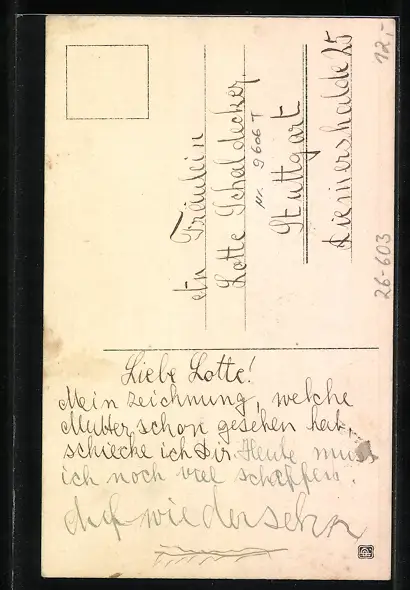 Liebe Lotte!
Mein zeichnung, welche
Mutter schon gesehen hat,
schiecke ich Dir. Heute muss
ich noch viel schaffen.
Auf wiedersehn
An Fräulein
Lotte Schaldecker
Nr. 9606 T
Stuttgart
Diemershalde 25
12,-
26-603